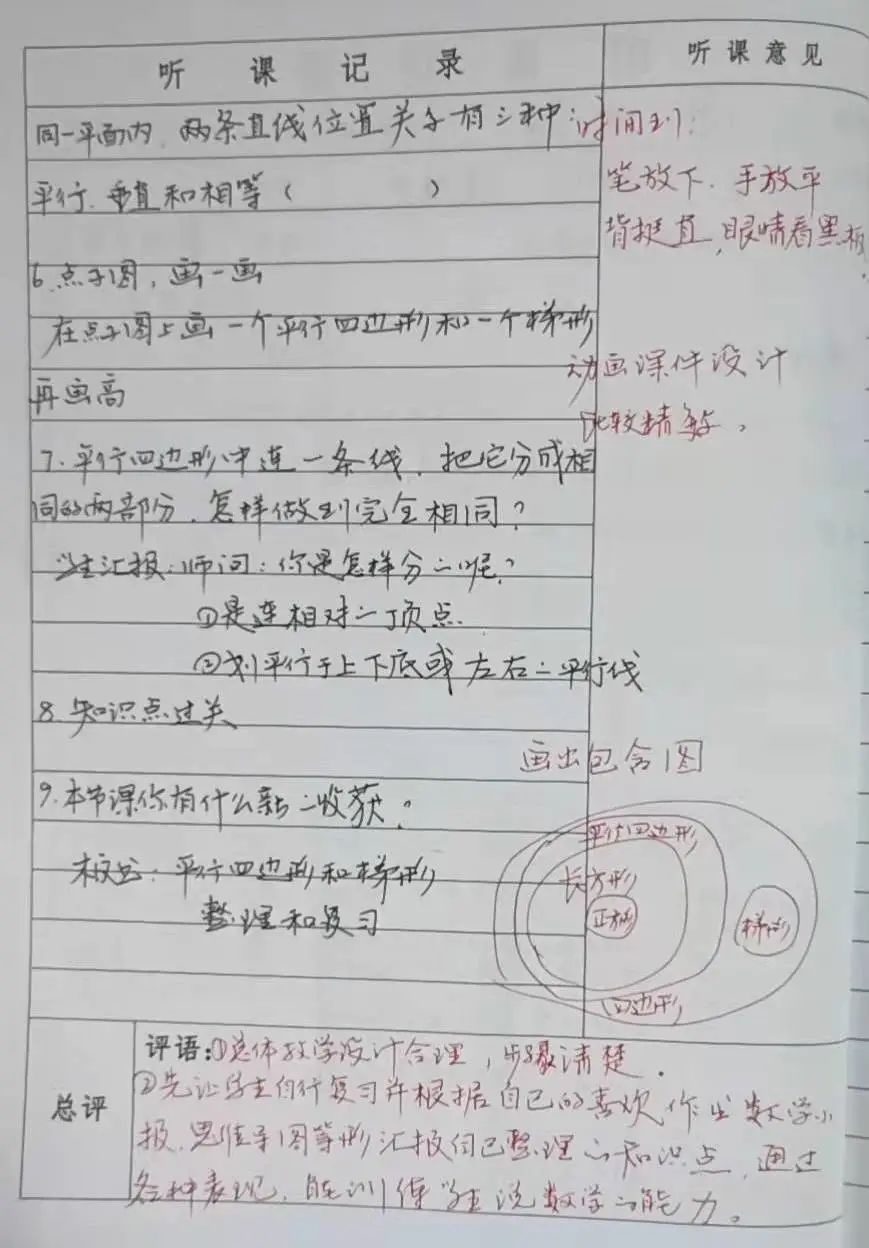 听课记录
听课意见
同一平面内，两条直线位置关系有三种：
平行、垂直和相等（ ）
6.点子图，画一画
在点子图上画一个平行四边形和一个梯形
再画高
7.平行四边形中连一条线，把它分成相
同的两部分，怎样做到完全相同？
学生汇报：师问：你是怎样分的呢？
①是连相对的顶点
②划平行于上下底或左右的平行线
8.知识点过关
9.本节课你有什么新的收获？
板书：平行四边形和梯形
整理和复习
时间到：
笔放下、手放平
背挺直，眼睛看黑板
动画课件设计
比较精彩。
画出包含图
平行四边形
长方形
正方形
梯形
四边形
总评
评语：①总体教学设计合理，步骤清楚。
②先让学生自行复习并根据自己的喜欢作出数学小
报、思维导图等形汇报自己整理的知识点，通过
各种表现，能训练学生说数学的能力。